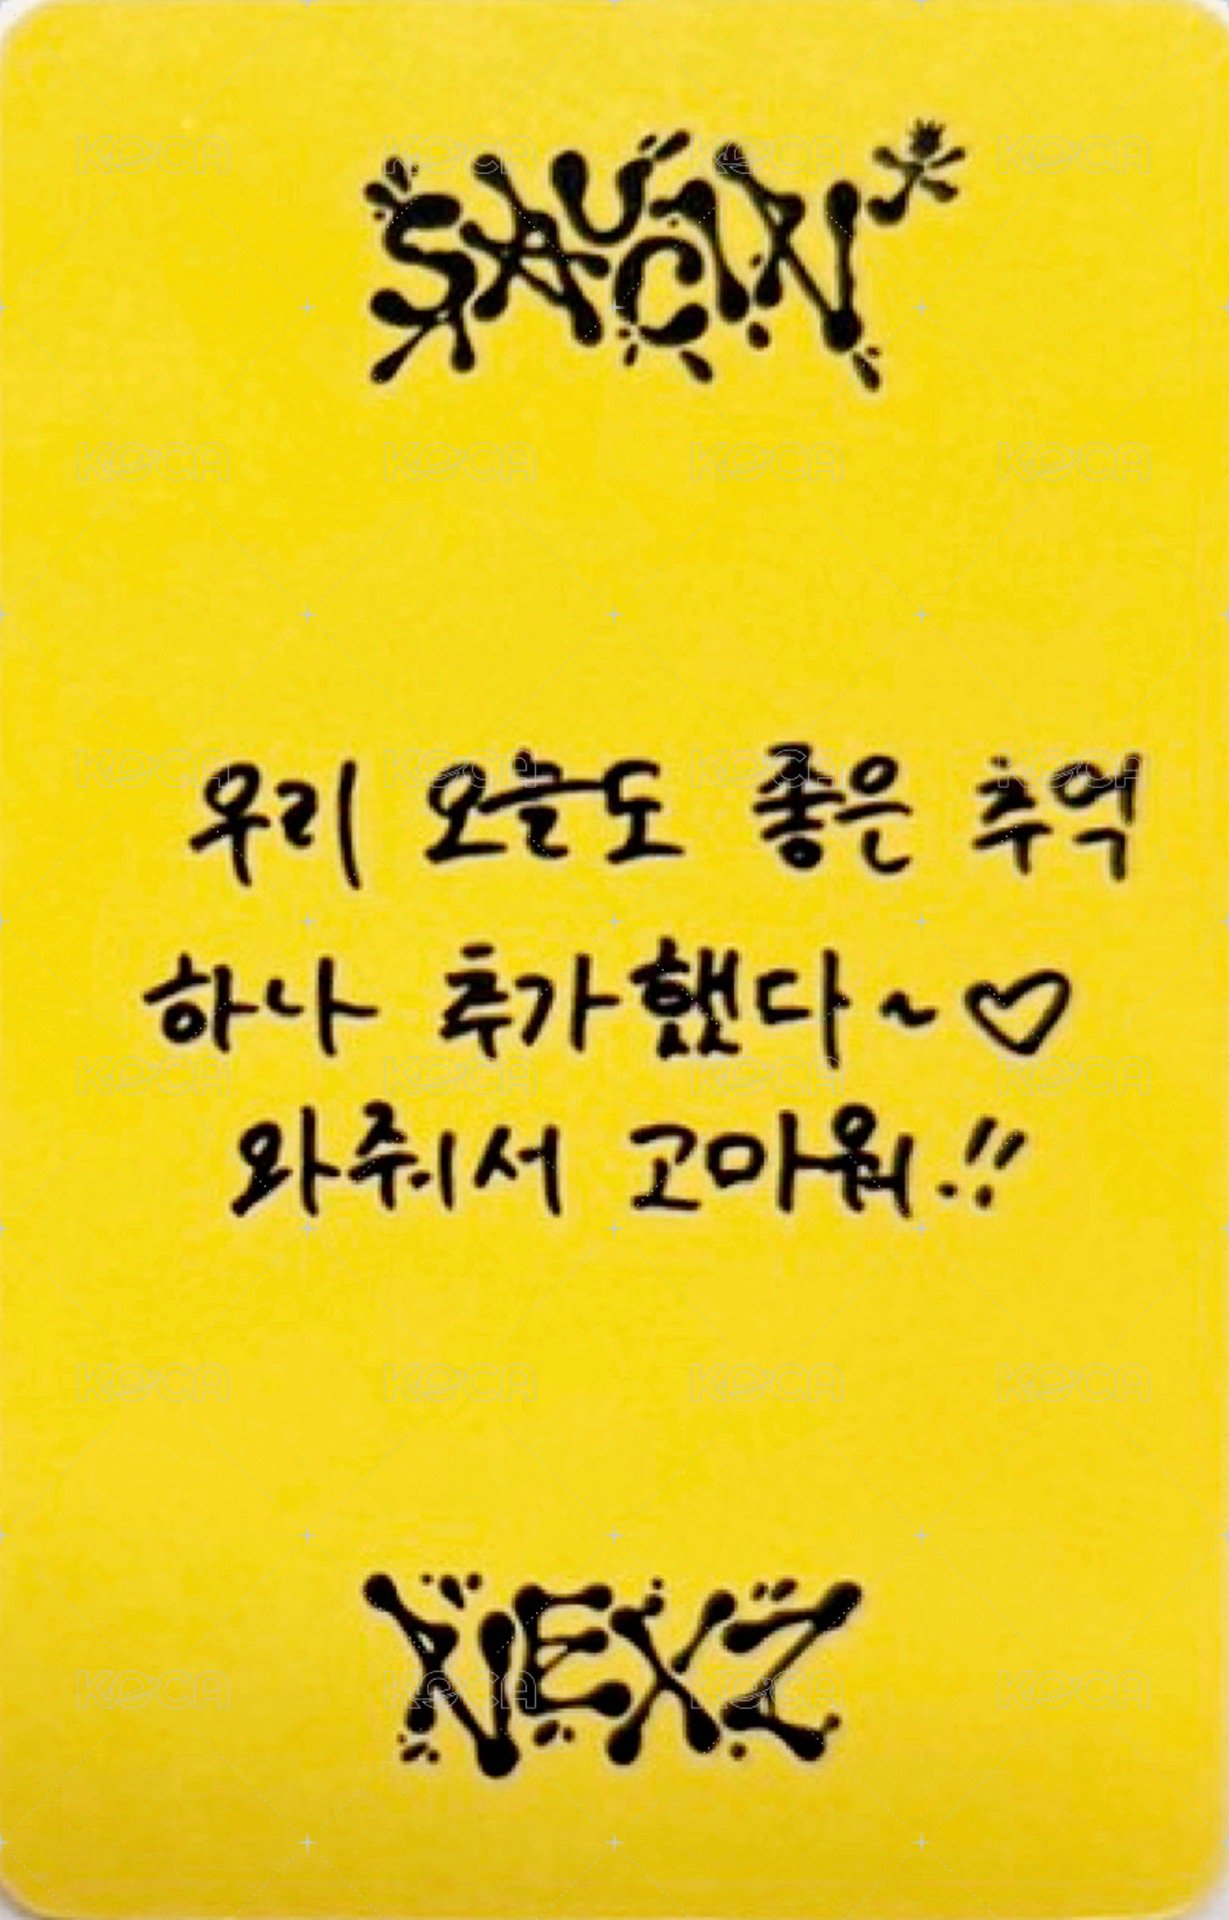 SAUCIN'
우리 오늘도 좋은 추억
하나 추가했다~♡
와줘서 고마워!!
NEXZ
KOCA